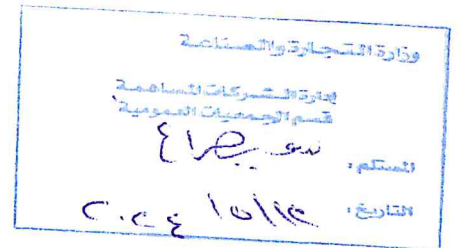 وزارة التجارة والصناعة
إدارة الشركات المساهمة
قسم الجمعيات العمومية
المستلم :
التاريخ : ٢٠٢٤